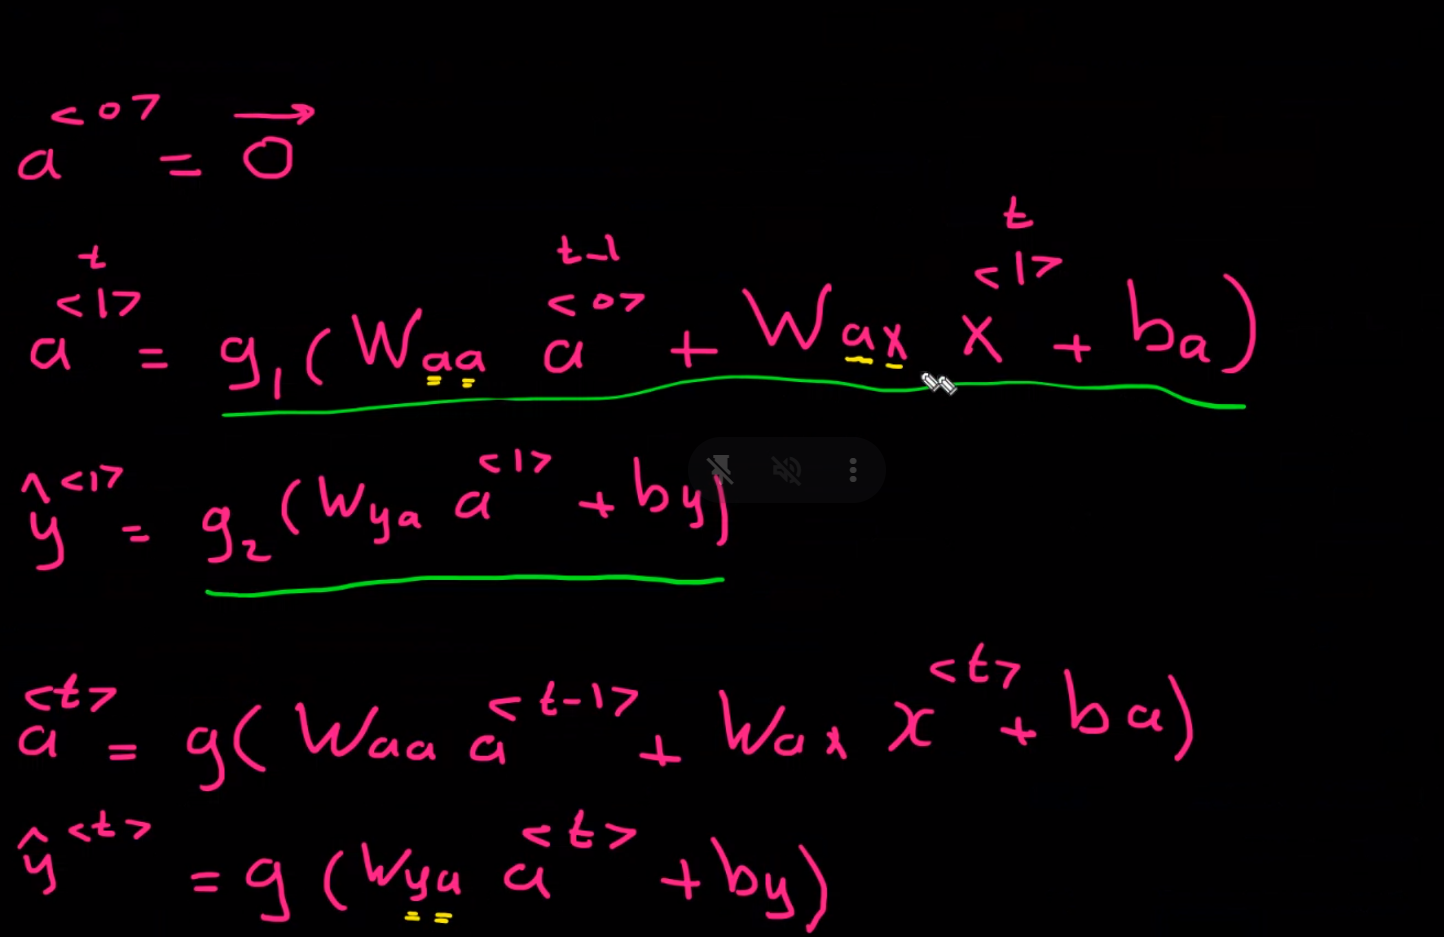 a^<0> = 0⃗
t t-1 t
a^<1> = g₁(Waa a^<0> + Wax x^<1> + ba)
ŷ^<1> = g₂(Wya a^<1> + by)
a^<t> = g(Waa a^<t-1> + Wax x^<t> + ba)
ŷ^<t> = g(Wya a^<t> + by)